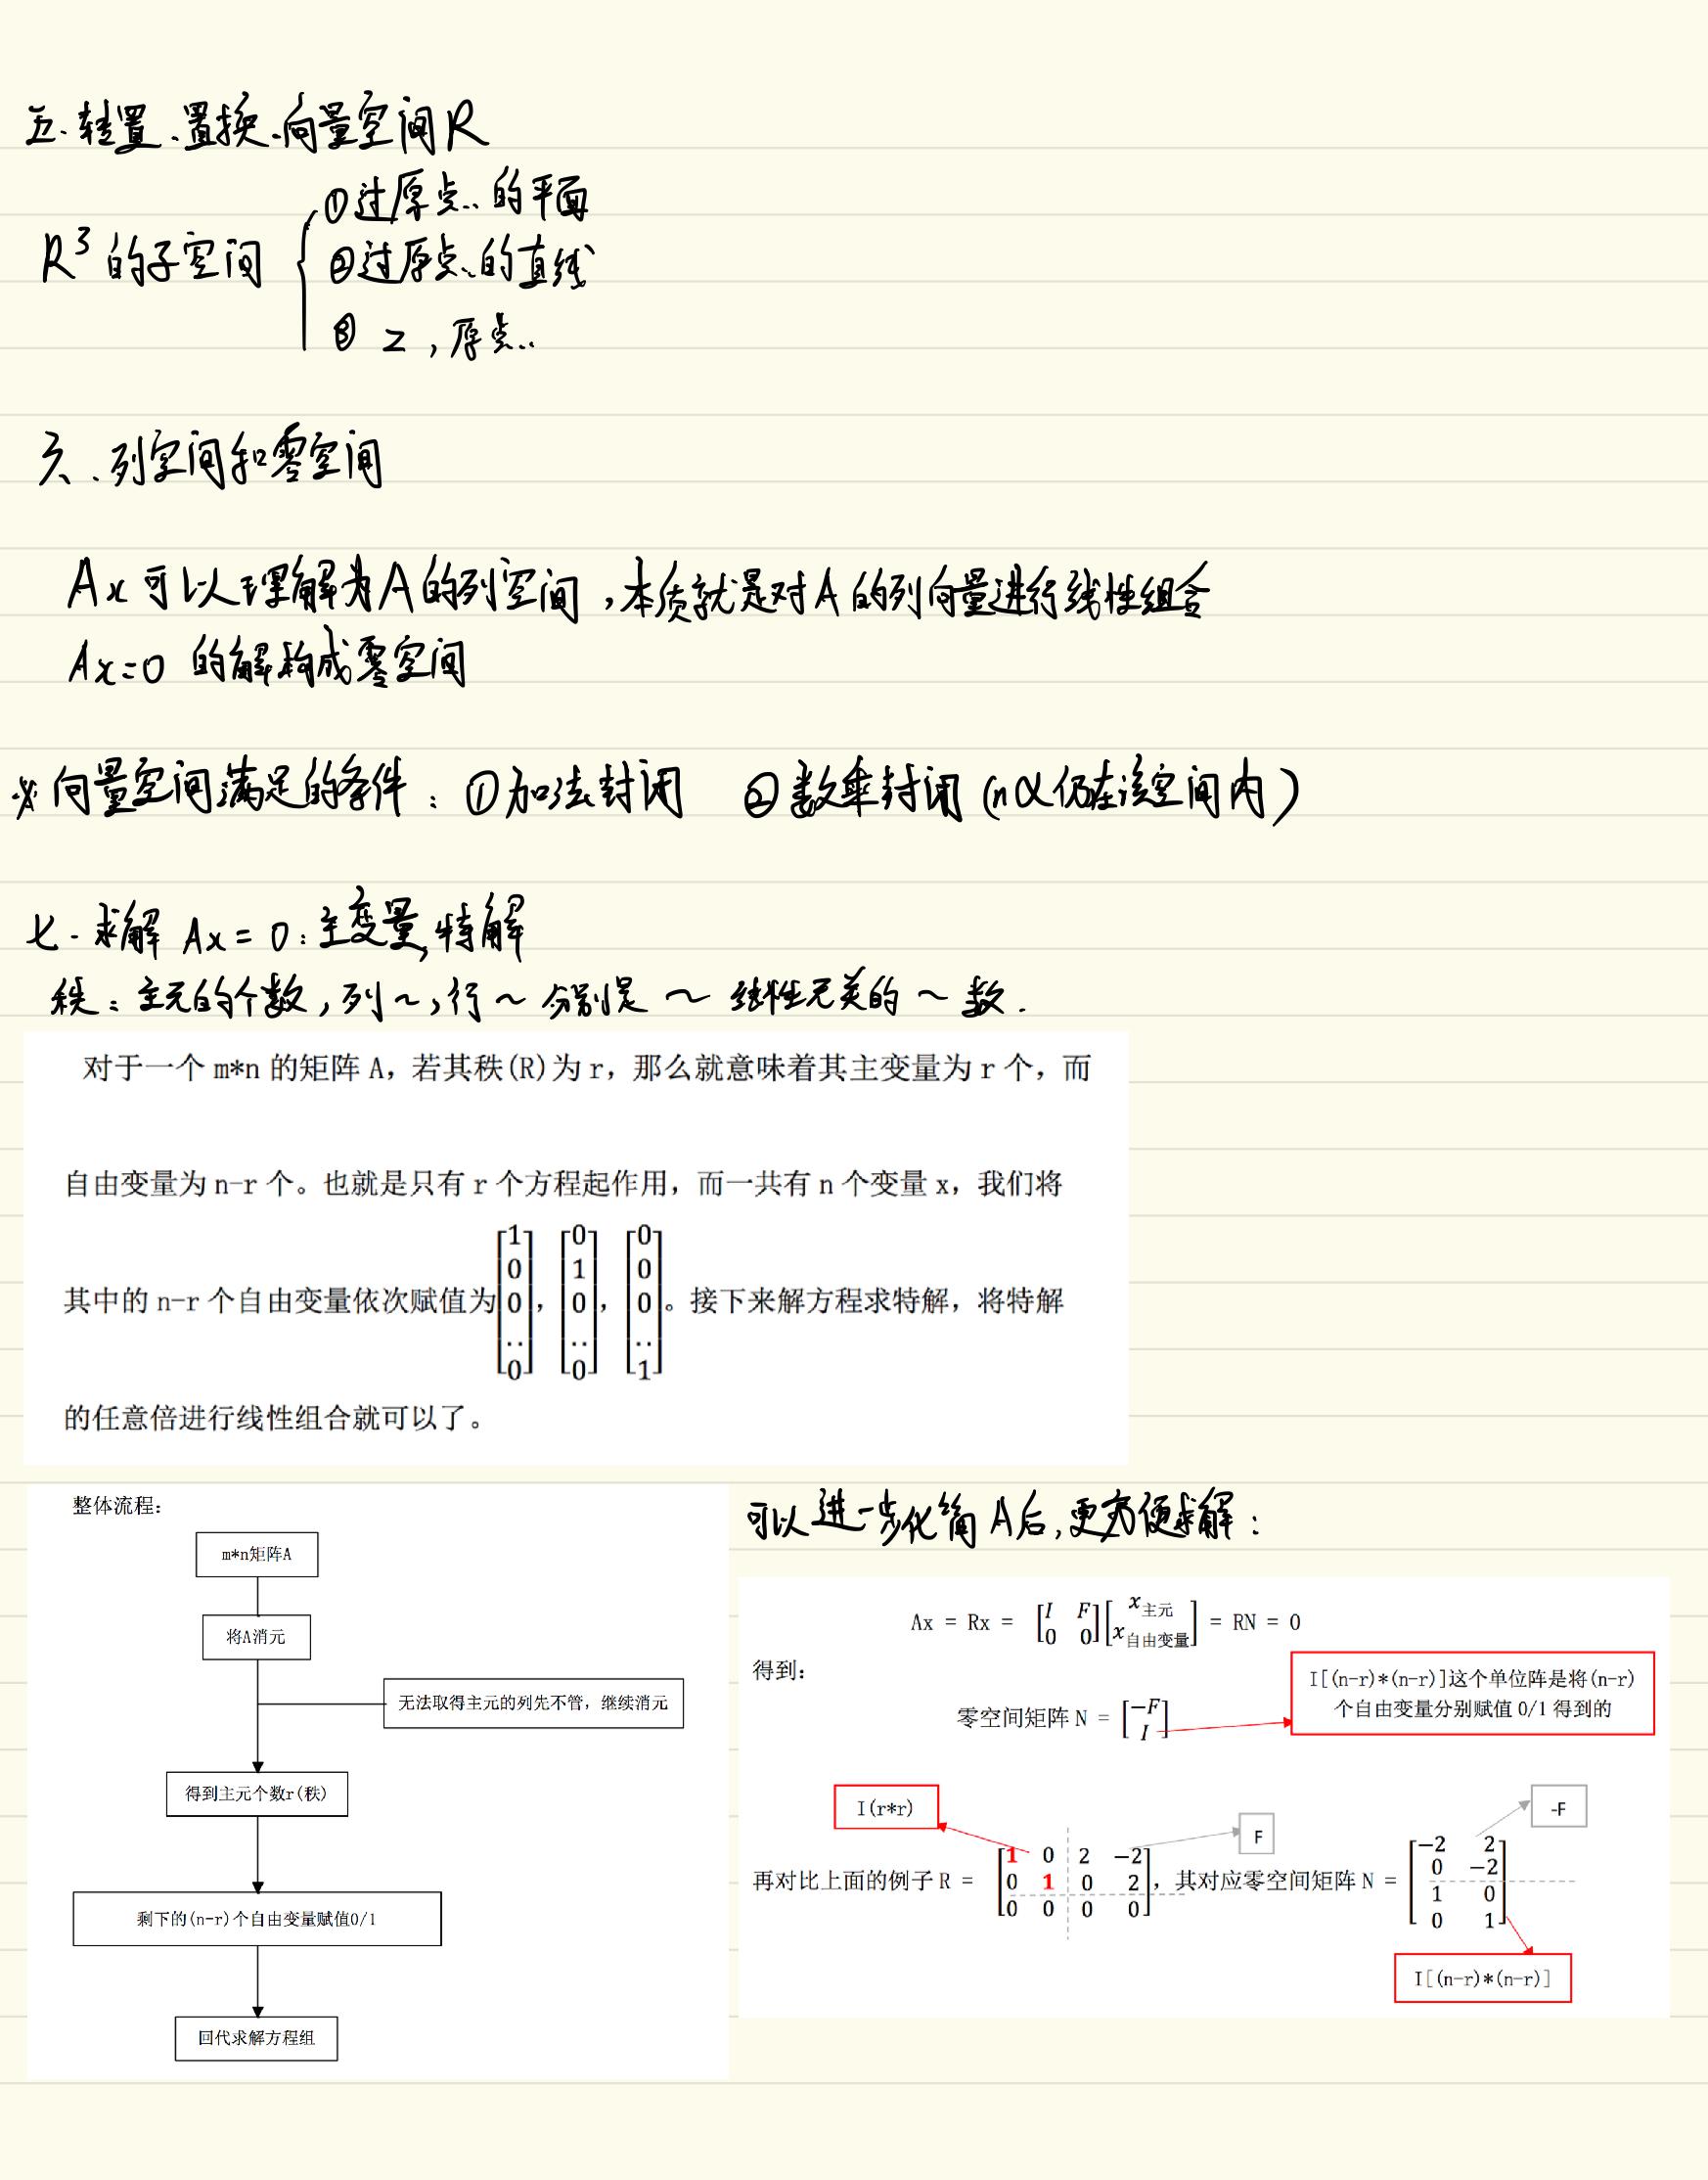 五.转置、置换、向量空间R
R³的子空间 { ①过原点的平面
②过原点的直线
③ Z,原点
六、列空间和零空间
Ax可以理解为A的列空间,本质就是对A的列向量进行线性组合
Ax=0 的解构成零空间
※向量空间满足的条件:①加法封闭 ②数乘封闭(nα仍在该空间内)
七.求解 Ax=0:主变量,特解
秩:主元的个数,列~,行~分别是~线性无关的~数.
对于一个 m*n 的矩阵 A,若其秩(R)为 r,那么就意味着其主变量为 r 个,而
自由变量为 n-r 个。也就是只有 r 个方程起作用,而一共有 n 个变量 x,我们将
其中的 n-r 个自由变量依次赋值为[1 0 0 .. 0],[0 1 0 .. 0],[0 0 0 .. 1]。接下来解方程求特解,将特解
的任意倍进行线性组合就可以了。
整体流程:
m*n矩阵A
将A消元
无法取得主元的列先不管,继续消元
得到主元个数r(秩)
剩下的(n-r)个自由变量赋值0/1
回代求解方程组
可以进一步化简A后,更方便求解:
Ax = Rx = [I F; 0 0][x主元; x自由变量] = RN = 0
得到:
I[(n-r)*(n-r)]这个单位阵是将(n-r)
个自由变量分别赋值 0/1 得到的
零空间矩阵 N = [-F; I]
I(r*r)
F
-F
再对比上面的例子 R = [1 0 2 −2; 0 1 0 2; 0 0 0 0],其对应零空间矩阵 N = [−2 2; 0 −2; 1 0; 0 1]
I[(n-r)*(n-r)]